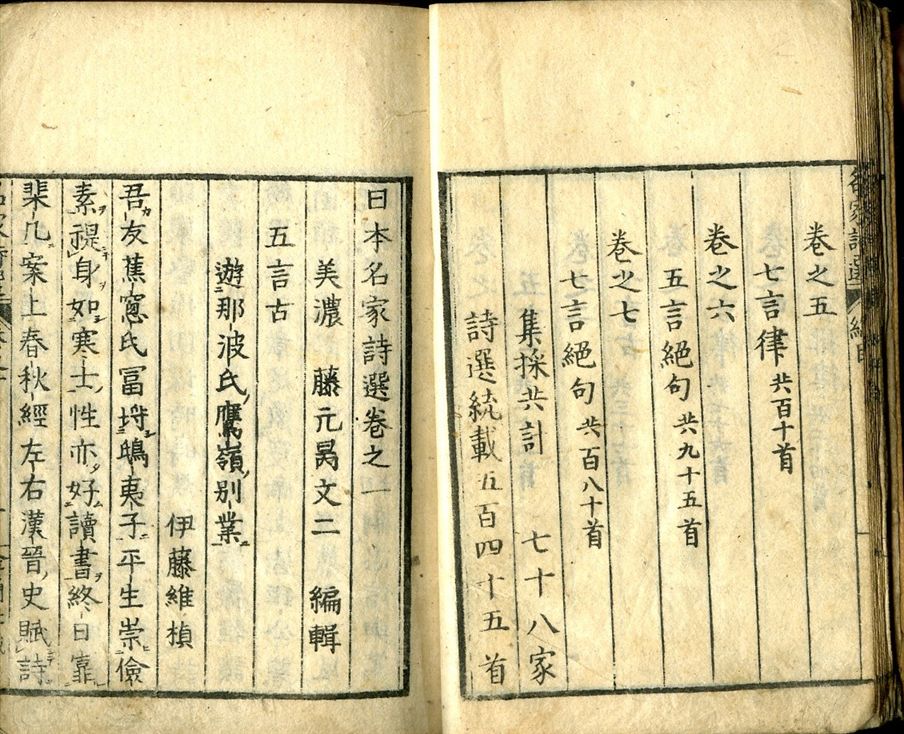 卷之五
七言律 共百十首
卷之六
五言絕句 共九十五首
卷之七
七言絕句 共百八十首
集採共計 七十八家
詩選統載五百四十五首
日本名家詩選卷之一
美濃 藤元昺文二 編輯
五言古
遊那波氏鷹嶺別業
伊藤維楨
吾友蕉窓氏冨埒鴟夷子平生崇儉
素禔身如寒士性亦好讀書終日靠
棐几案上春秋經左右漢晉史賦詩